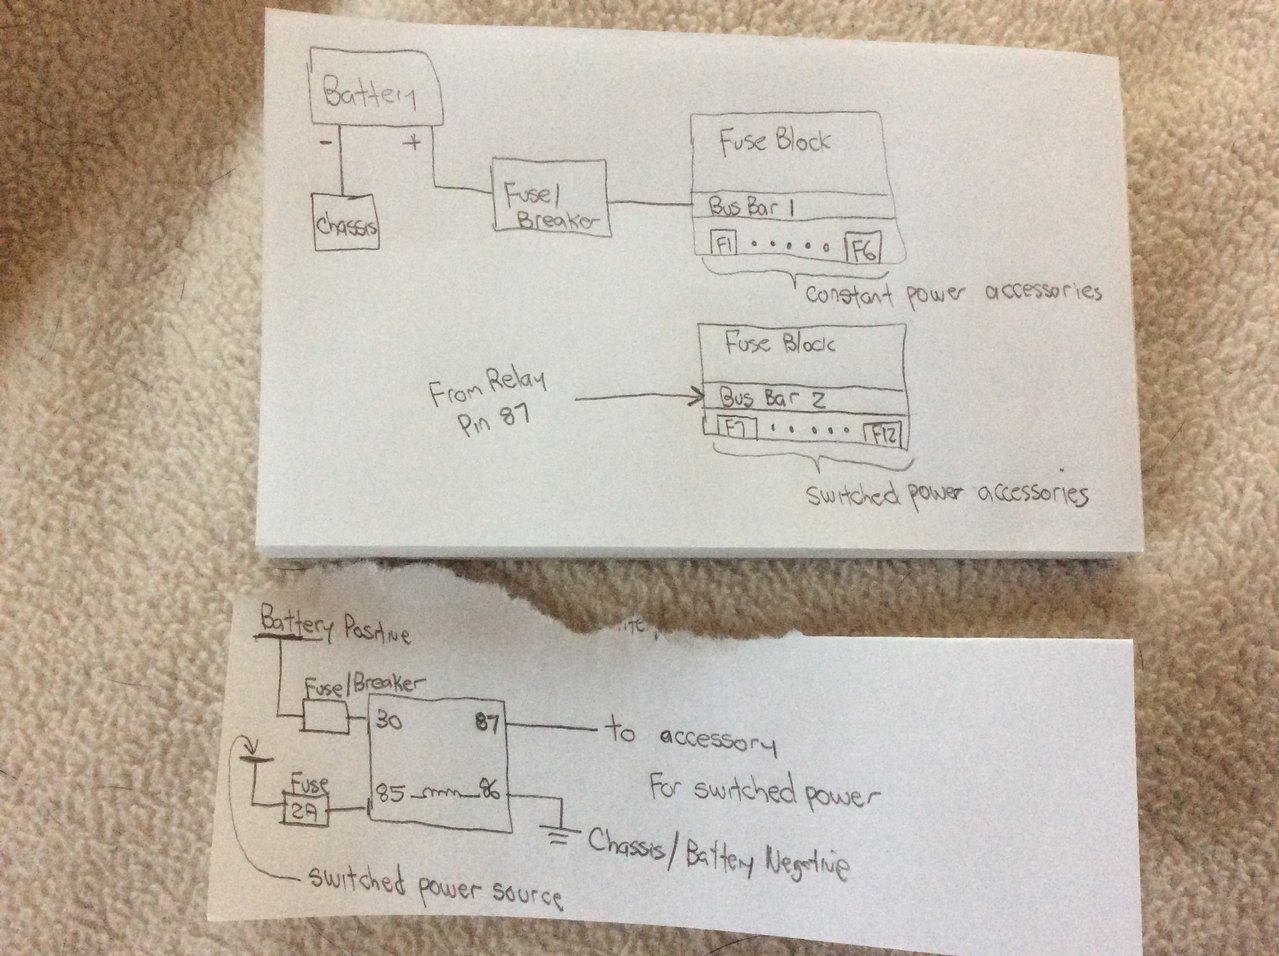 Battery
- +
Chassis
Fuse/
Breaker
Fuse Block
Bus Bar 1
F1 ..... F6
constant power accessories
Fuse Block
Bus Bar 2
F7 ..... F12
From Relay
Pin 87
switched power accessories
Battery Positive
Fuse/Breaker
30 87
to accessory
For switched power
Fuse
2A
85 86
Chassis/Battery Negative
switched power source